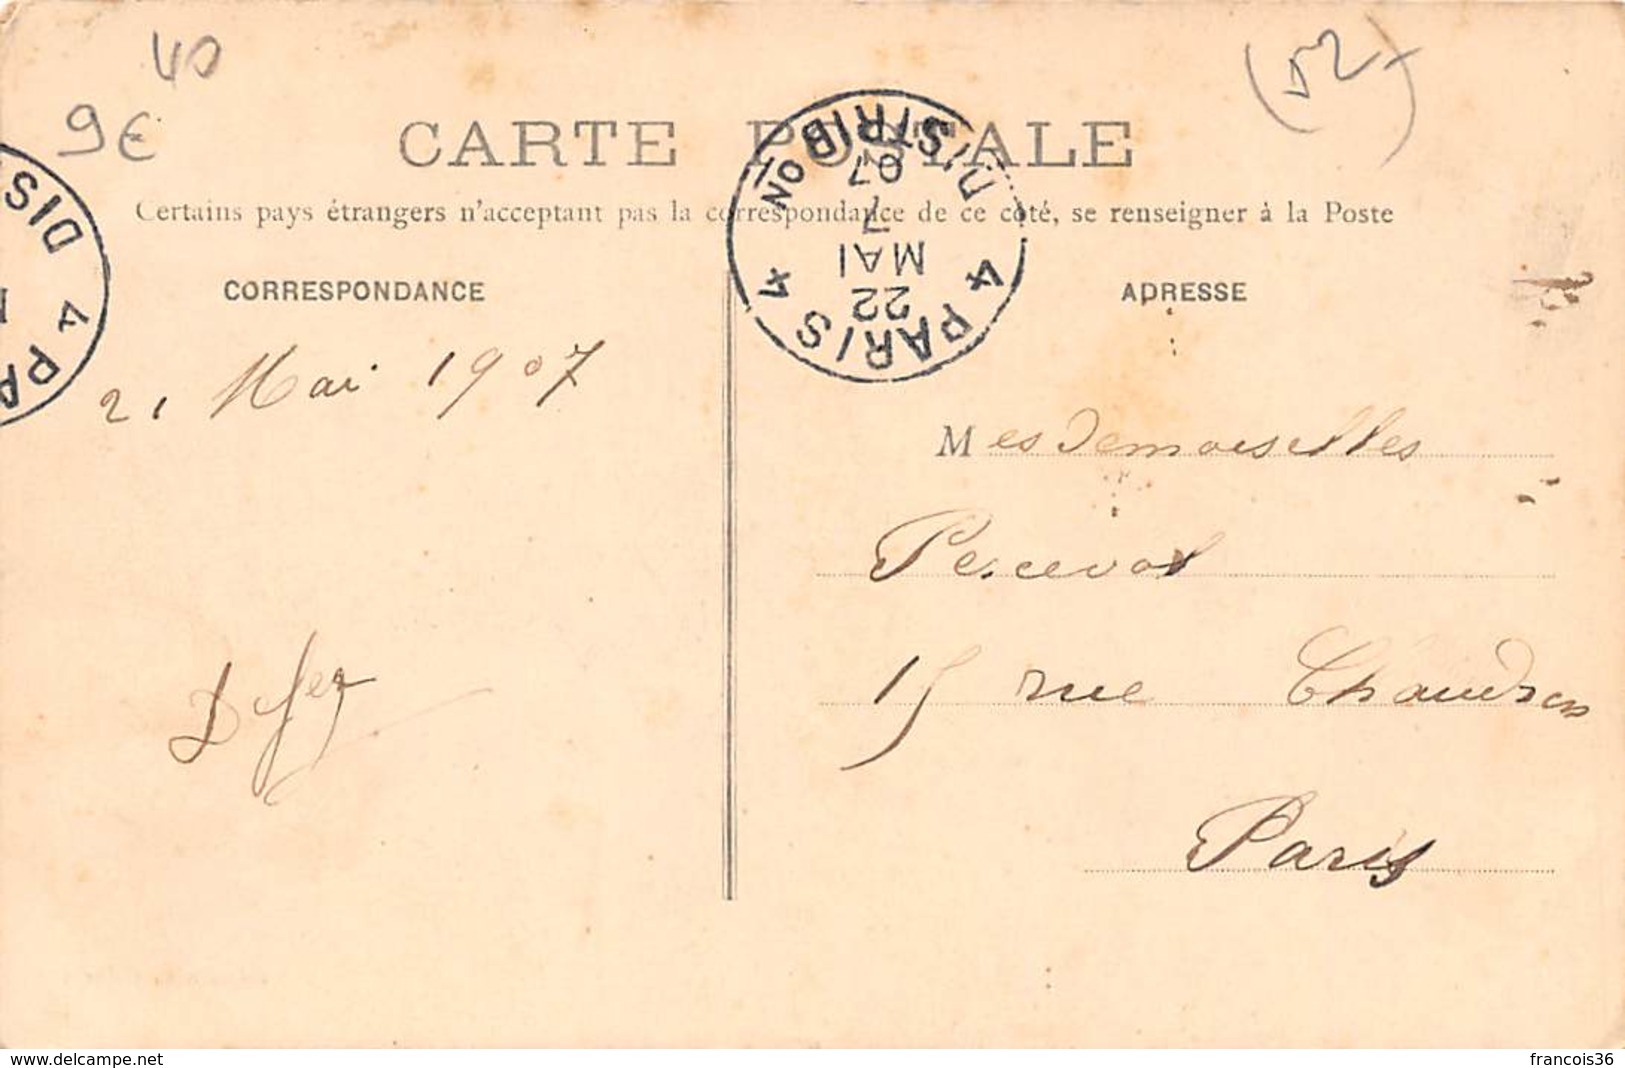 40
9€
(52)
CARTE POSTALE
Certains pays étrangers n'acceptant pas la correspondance de ce côté, se renseigner à la Poste
CORRESPONDANCE
ADRESSE
PARIS 4 DISTRIBON
22 MAI
7
07
4 PA
DIS
21 Mai 1907
Mesdemoiselles
Perceval
15 rue
Paris
www.delcampe.net
francois36